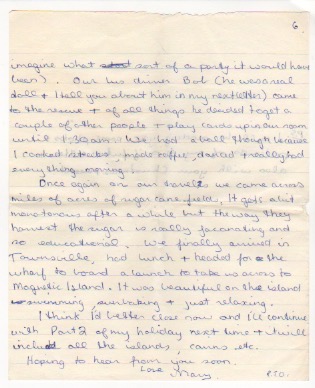 6.
imagine what sort of a party it would have
been). Our bus driver Bob (he was a real
doll & I tell you about him in my next letter) came
to the rescue & of all things he decided to get a
couple of other people & play cards up in our room
until 1.30am. We had a ball though because
I cooked steaks, made coffee, danced & really had
everything moving.
Once again on our travels we came across
miles of acres of sugar cane fields. It gets a bit
monotonous after a while but the way they
harvest the sugar is really facanating and
so educational. We finally arrived in
Townsville, had lunch & headed for the
wharf to board a launch to take us across to
Magnetic Island. It was beautiful on the island
swimming, sunbaking & just relaxing.
I think I'd better close now and I'll continue
with Part 2 of my holiday next time & I will
include all the islands, cairns etc.
Hoping to hear from you soon.
Love Mary.
P.T.O.